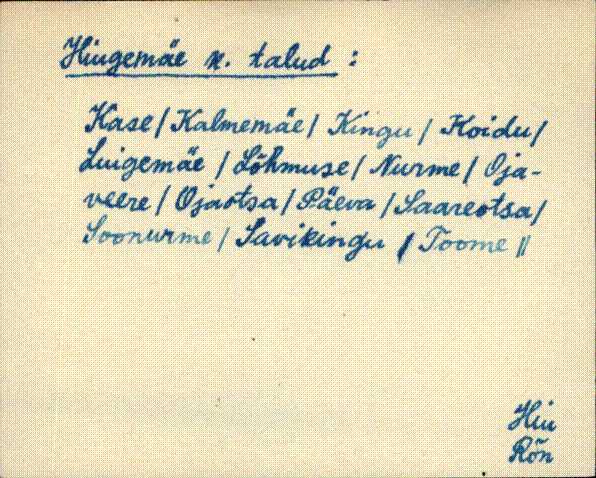 Hiugemäe n. talud :
Kase / Kalmemäe / Kingu / Koidu /
Luigemäe / Lõhmuse / Nurme / Oja-
veere / Ojaotsa / Päeva / Saareotsa /
Soonurme / Savikingu / Toome //
Hiu
Rõn